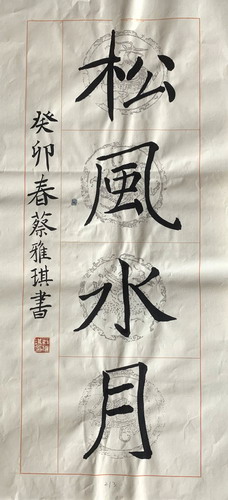 松風水月
癸卯春蔡雅琪書